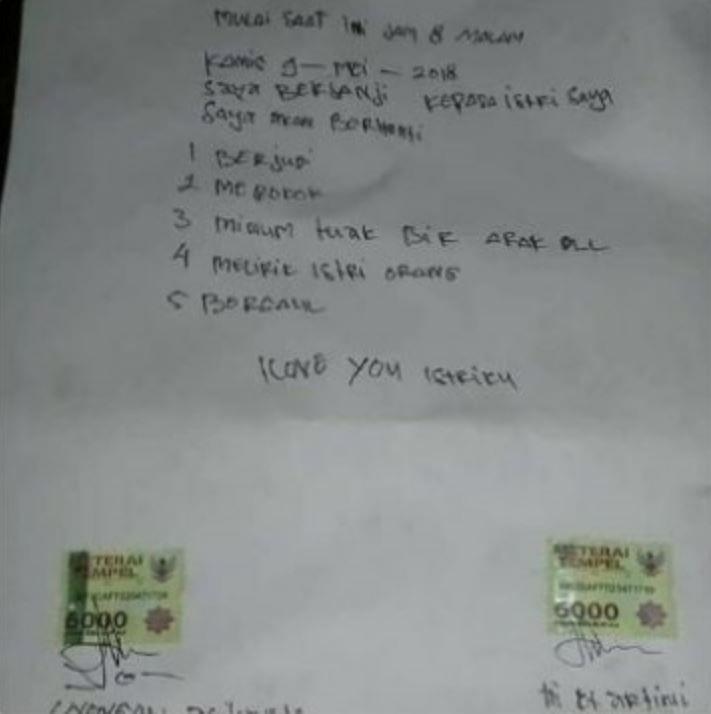 MULAI SAAT INI JAM 8 MALAM
KAMIS 9 - MEI - 2018
SAYA BERJANJI KEPADA ISTRI SAYA
SAYA AKAN BERHENTI
1 BERJUDI
2 MEROKOK
3 MINUM TUAK BIR ARAK DLL
4 MELIRIK ISTRI ORANG
5 BERGAUL
I LOVE YOU ISTRIKU
METERAI TEMPEL
6000
METERAI TEMPEL
6000